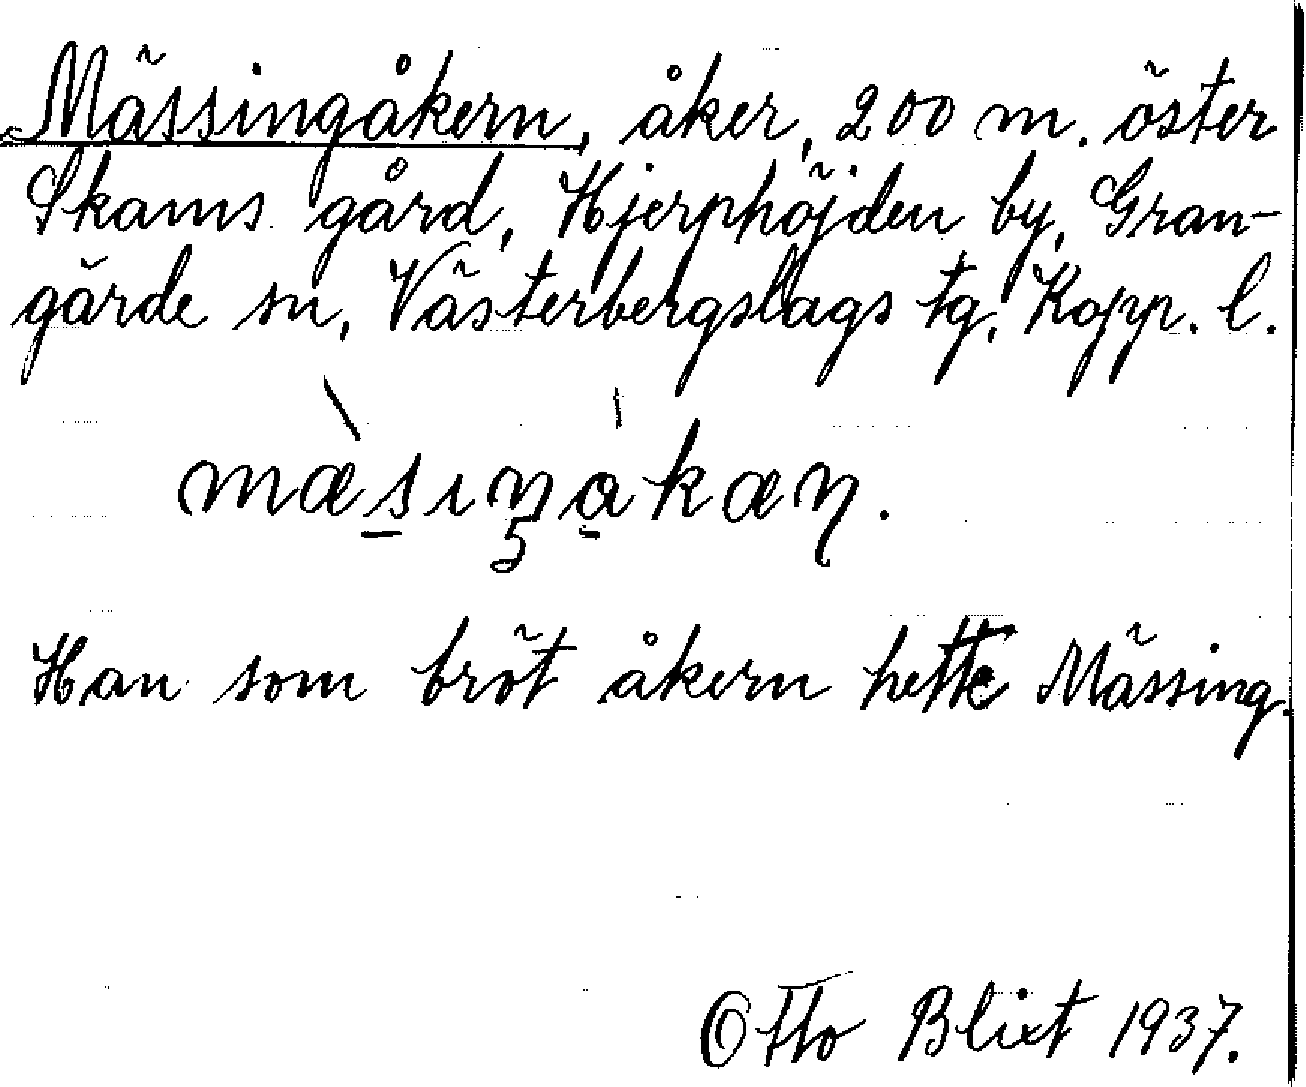 Mässingåkern, åker, 200 m. öster
Skams gård, Hjerphöjden by, Gran-
gärde sn, Västerbergslags tg, Kopp. l.
mæ̀sıŋåkæɳ.
Han som bröt åkern hette Mässing.
Otto Blixt 1937.